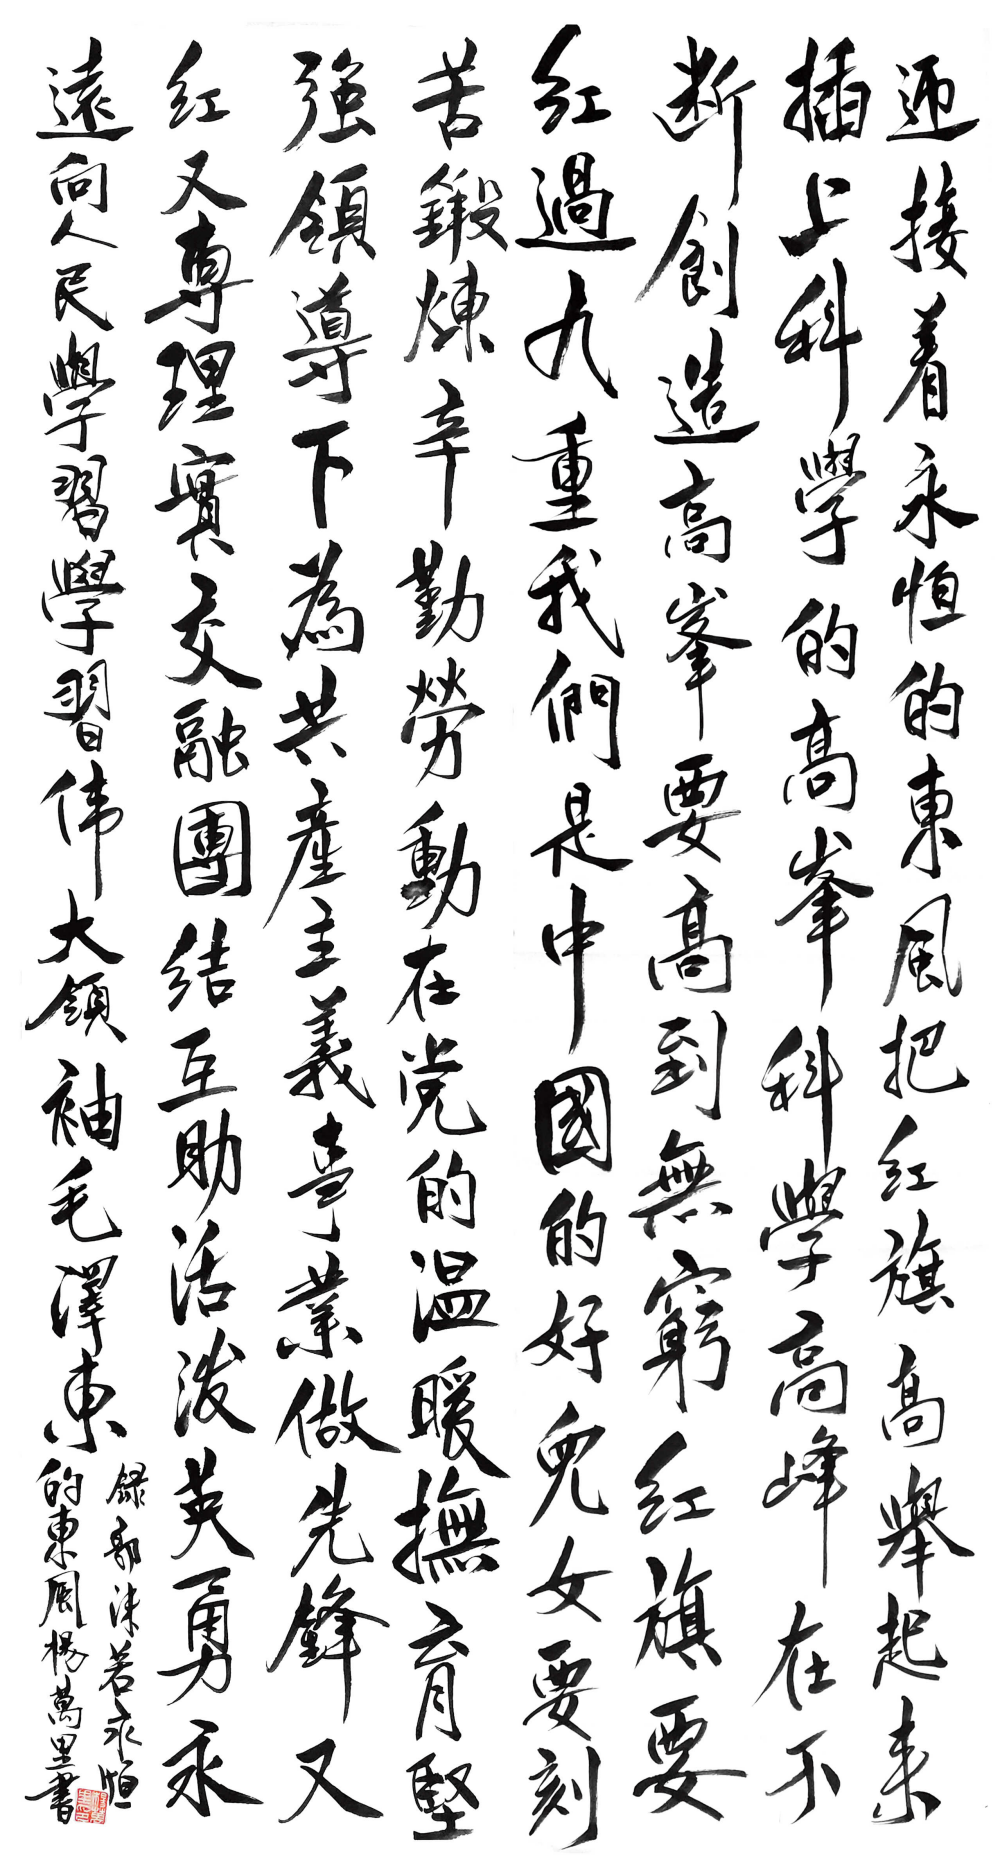 迎接着永恒的東風把红旗高舉起来
插上科學的高峯科學高峰在不
断創造高峯要高到無窮红旗要
红過九重我們是中國的好兒女要刻
苦鍛煉辛勤勞動在党的温暖撫育堅
強領導下為共產主義事業做先鋒又
红又專理實交融團结互助活泼英勇永
遠向人民學習學習伟大領袖毛澤東
録郭沫若永恒
的東風楊萬里書